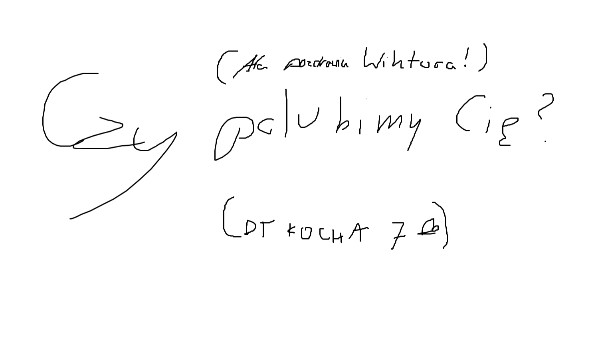 (Ala pozdrawia Wiktora!)
Czy palubimy Cię?
(DT KOCHA 7 B)